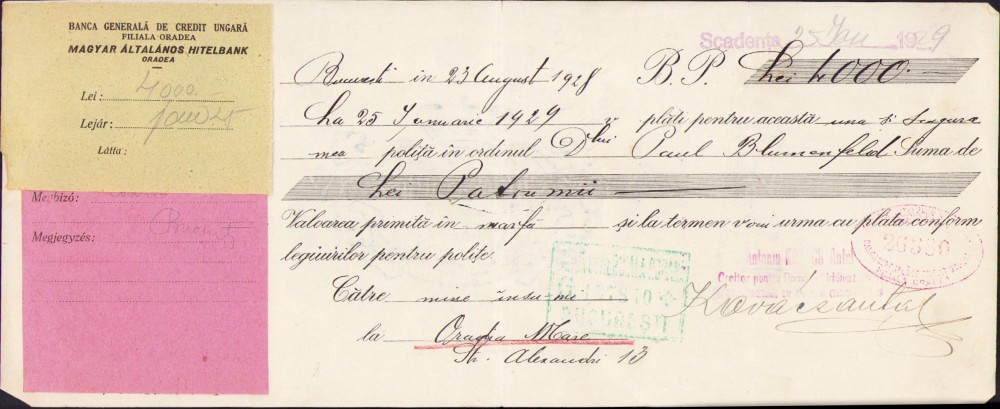 BANCA GENERALĂ DE CREDIT UNGARĂ
FILIALA ORADEA
MAGYAR ÁLTALÁNOS HITELBANK
ORADEA
Lei: 4000.-
Lejár:
Látta:
Megbizó:
Megjegyzés:
Scadența 25 Ian 1929
Bucuresti în 23 August 1928 B. P. Lei 4000.-
La 25 Ianuarie 1929 v plăti pentru aceasta una și singura
mea poliță în ordinul Dlui Paul Blumenfeld Suma de
Lei Patru mii
Valoarea primită în marfă și la termen voi urma cu plata conform
legiuirilor pentru polițe.
26880
Către mine însumi
BUCUREȘTI
Kovács Antal
la Oradea Mare
Str. Alexandri 13